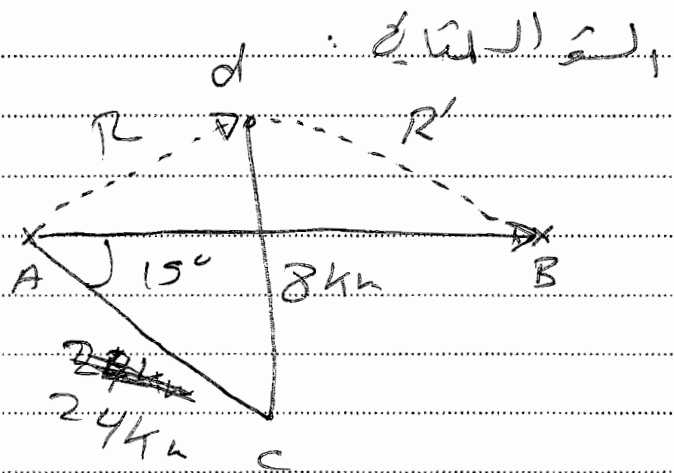 السؤال الثاني :
d
R R'
A 15° 8 Km B
24 Km
C